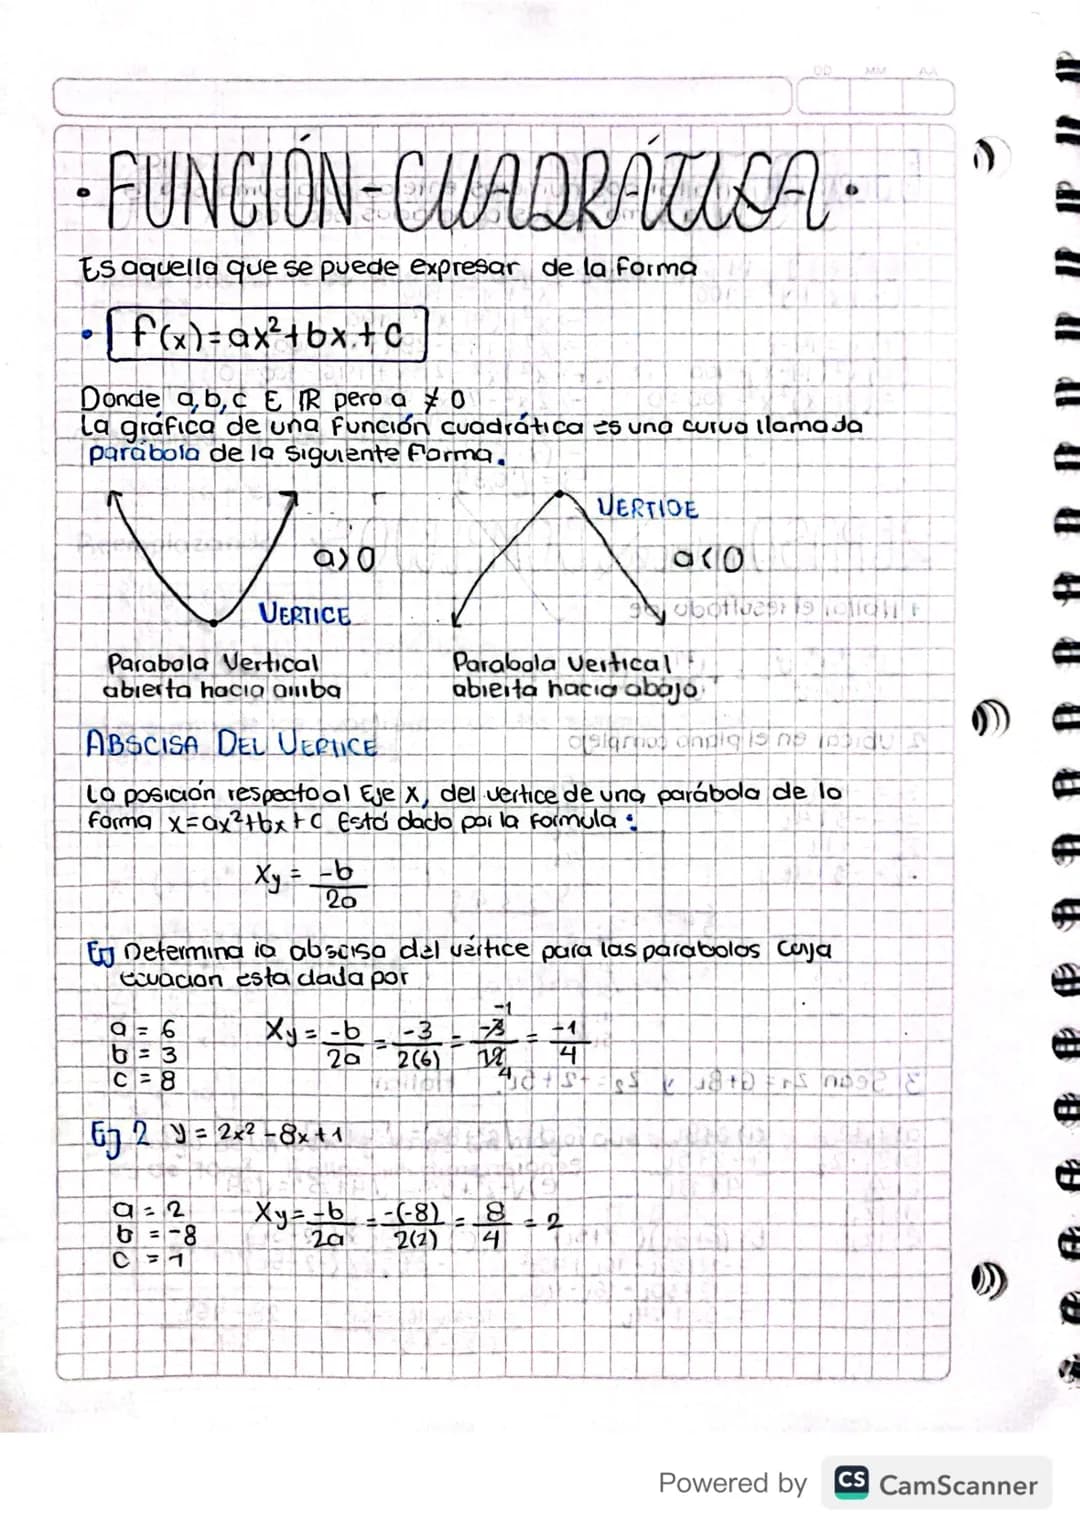 DD MM AA
• FUNCIÓN-CUADRÁTICA •
Es aquella que se puede expresar de la forma
• f(x)=ax²+bx+c
Donde a,b,c E IR pero a ≠ 0
La gráfica de una función cuadrática es una curva llamada
parábola de la siguiente forma.
VERTICE
a>0
a<0
VERTICE
Parabola Vertical
abierta hacia arriba
Parabola Vertical
abierta hacia abajo
ABSCISA DEL VERTICE
La posición respecto al Eje X, del vertice de una parábola de la
forma x=ax²+bx+c Está dado por la formula :
Xy = -b/2a
Ej Determina la abscisa del vértice para las parabolas cuya
ecuacion esta dada por
a = 6
b = 3
c = 8
Xy = -b/2a = -3/2(6) = -3/12 = -1/4
-1
4
Ej 2 y = 2x² - 8x + 1
a = 2
b = -8
c = 1
Xy = -b/2a = -(-8)/2(2) = 8/4 = 2
Powered by CS CamScanner